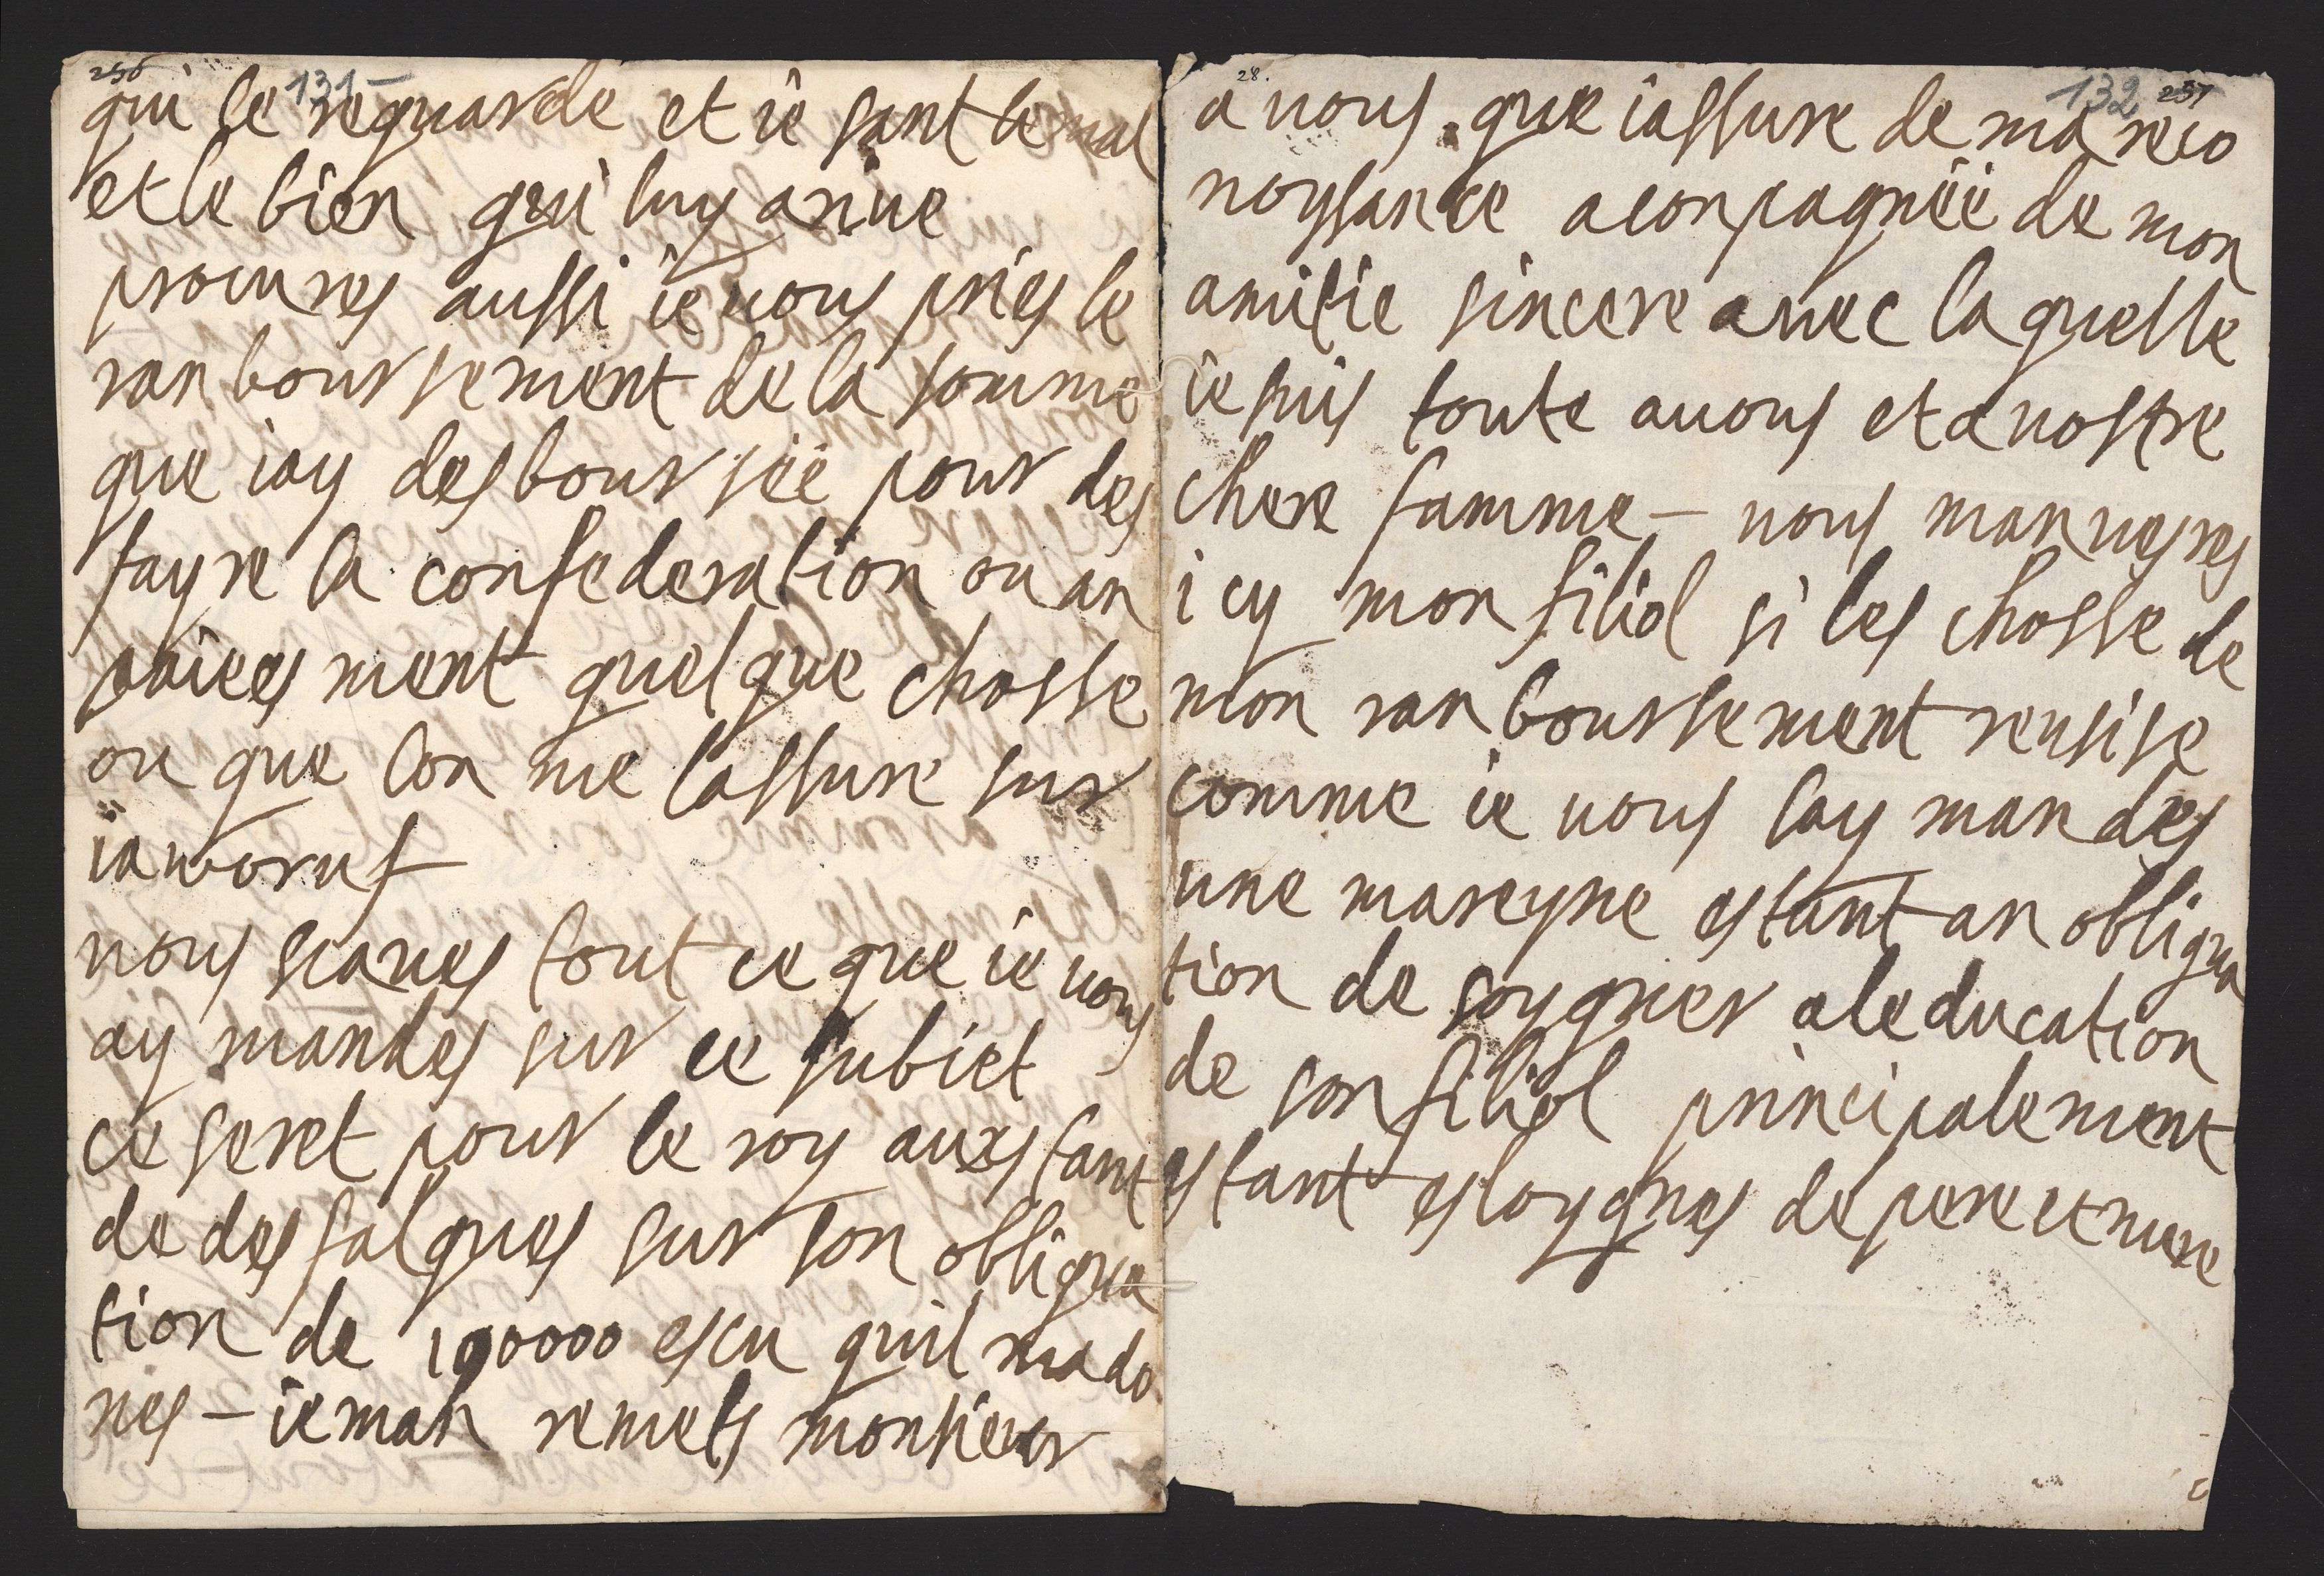 256 131-
qui le reguarde et ie sant le mal
et le bien qui luy ariue
procures aussi ie uous pries le
ran boursement de la somme
que iay desbour séé pour des
fayre la confederation ou an
paiees ment quelque chosse
ou que lon me lassure sur
iaworuf
uous scaues tout ce que ie uous
ay mandes sur ce subiet
ce seret pour le roy auxstant
de des falques sur son obligua
tion de 100000 escu quil mado
nes - ie man remets monsieur
28. 132 257
a uous que iassure de ma reco
noyssance aconpagnéé de mon
amitie sincere auec la quelle
ie suis toute auous et a uostre
chere famme - uous manuesres
i cy mon filiol si les chosse de
mon ran boursement reusise
comme ie uous lay mandes
une mareyne estant an obligua
tion de soygner aleducation
de son filiol principalement
estant esloygnes de pere et mere